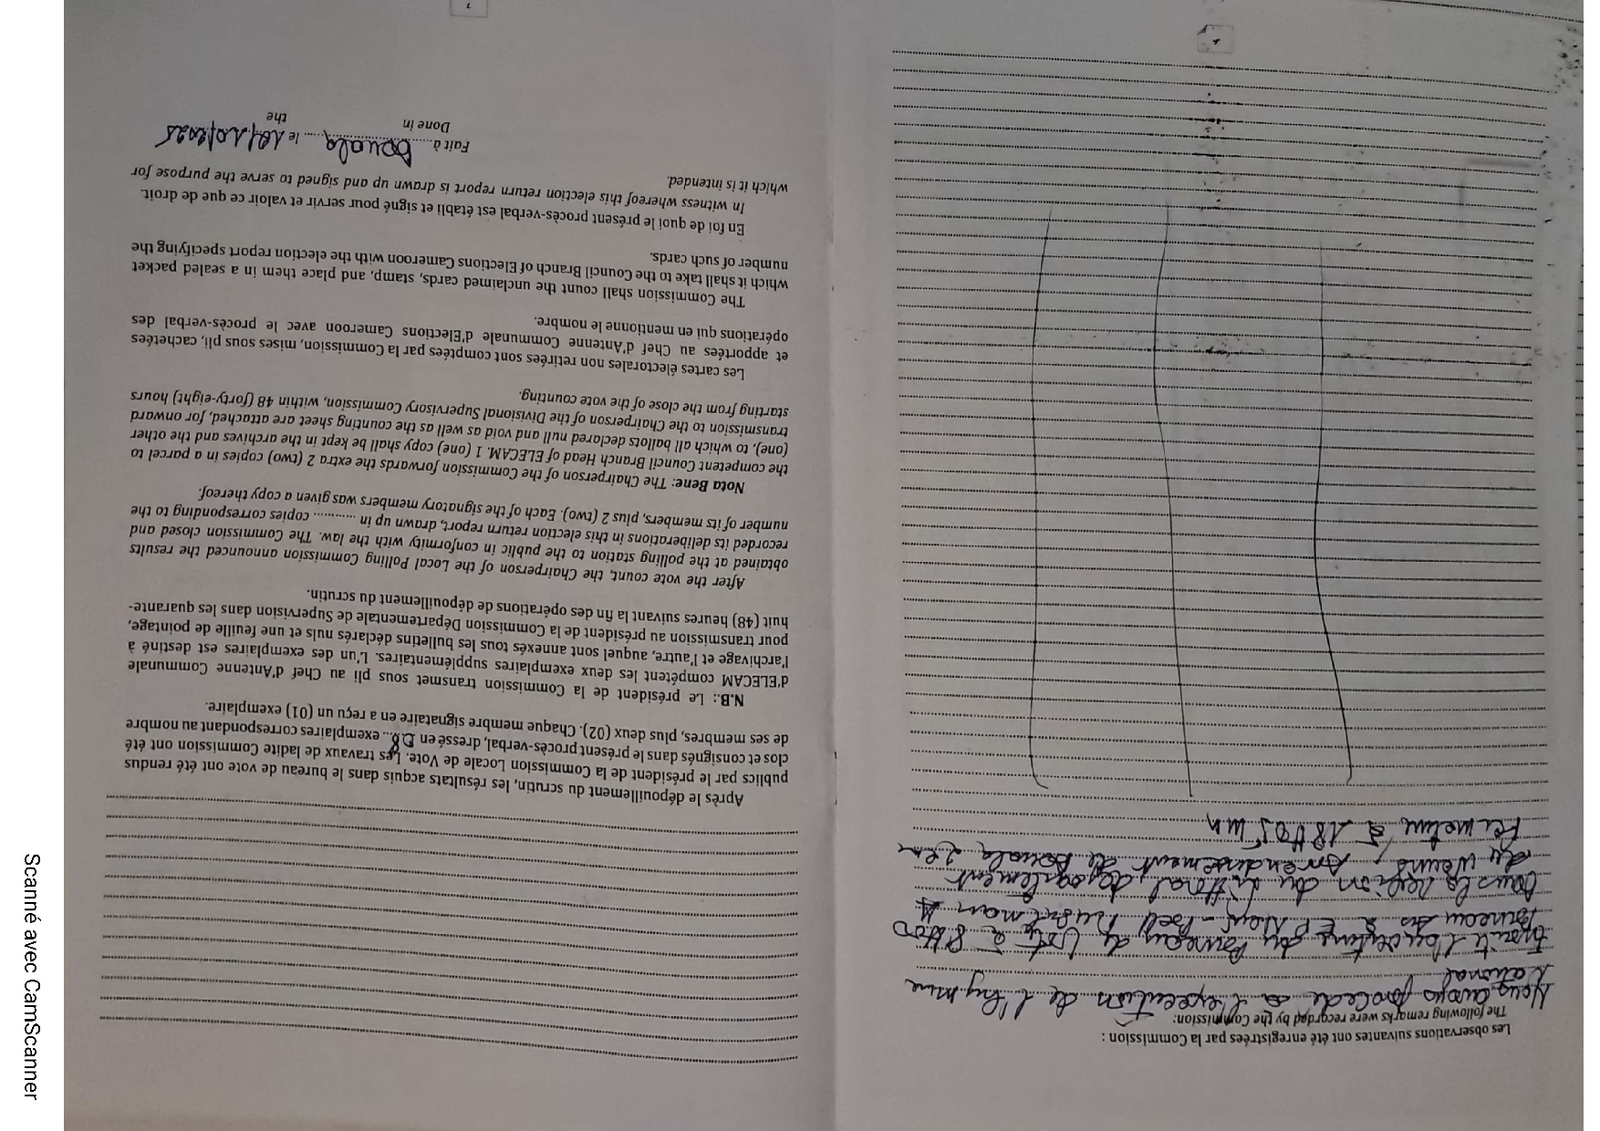 Les observations suivantes ont été enregistrées par la Commission :
The following remarks were recorded by the Commission:
Nous avons procédé à l'exécution de l'hymne
national
avant l'ouverture du Bureau de Vote à 8H00
Bureau
Dans la Region du Littoral, departement
du Wouri, Arrendissement de Douala
Fermeture à 18H05 mn
Après le dépouillement du scrutin, les résultats acquis dans le bureau de vote ont été rendus
publics par le président de la Commission Locale de Vote. Les travaux de ladite Commission ont été
clos et consignés dans le présent procès-verbal, dressé en 08... exemplaires correspondant au nombre
de ses membres, plus deux (02). Chaque membre signataire en a reçu un (01) exemplaire.
N.B.: Le président de la Commission transmet sous pli au Chef d'Antenne Communale
d'ELECAM compétent les deux exemplaires supplémentaires. L'un des exemplaires est destiné à
l'archivage et l'autre, auquel sont annexés tous les bulletins déclarés nuls et une feuille de pointage,
pour transmission au président de la Commission Départementale de Supervision dans les quarante-
huit (48) heures suivant la fin des opérations de dépouillement du scrutin.
After the vote count, the Chairperson of the Local Polling Commission announced the results
obtained at the polling station to the public in conformity with the law. The Commission closed and
recorded its deliberations in this election return report, drawn up in ............ copies corresponding to the
number of its members, plus 2 (two). Each of the signatory members was given a copy thereof.
Nota Bene: The Chairperson of the Commission forwards the extra 2 (two) copies in a parcel to
the competent Council Branch Head of ELECAM. 1 (one) copy shall be kept in the archives and the other
(one), to which all ballots declared null and void as well as the counting sheet are attached, for onward
transmission to the Chairperson of the Divisional Supervisory Commission, within 48 (forty-eight) hours
starting from the close of the vote counting.
Les cartes électorales non retirées sont comptées par la Commission, mises sous pli, cachetées
et apportées au Chef d'Antenne Communale d'Elections Cameroon avec le procès-verbal des
opérations qui en mentionne le nombre.
The Commission shall count the unclaimed cards, stamp, and place them in a sealed packet
which it shall take to the Council Branch of Elections Cameroon with the election report specifying the
number of such cards.
En foi de quoi le présent procès-verbal est établi et signé pour servir et valoir ce que de droit.
In witness whereof this election return report is drawn up and signed to serve the purpose for
which it is intended.
Fait à Douala le
Done in the
7
Scanné avec CamScanner